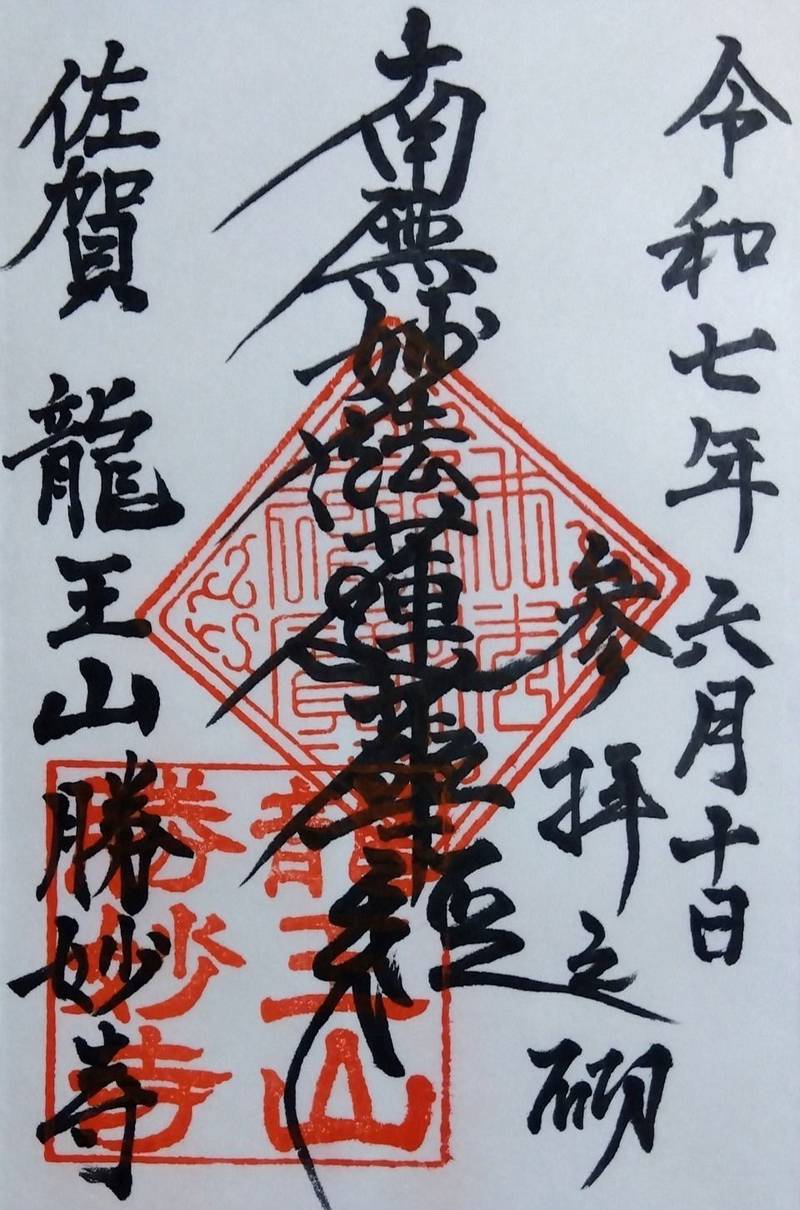 令和七年六月十日
参拝之砌
南無妙法蓮華経
佐賀 龍王山勝妙寺
龍王山
勝妙寺